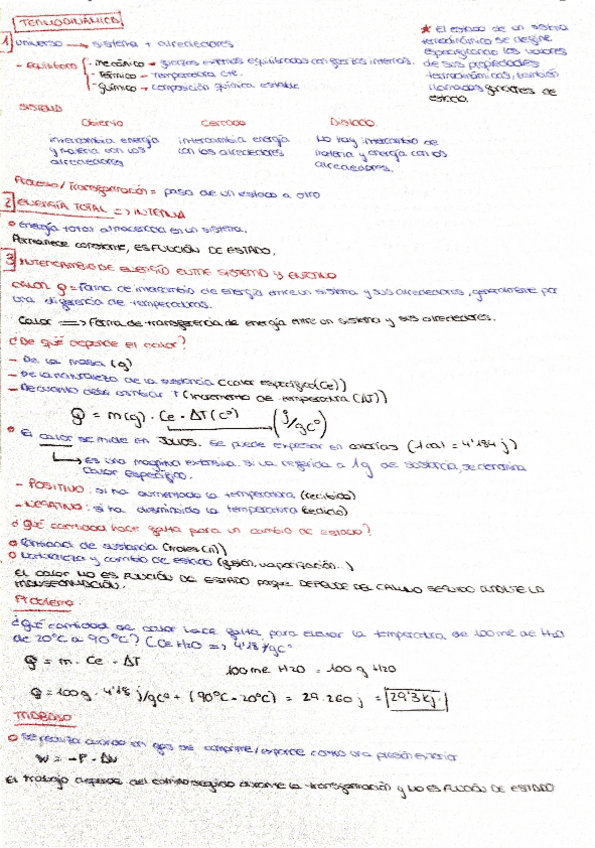 TERMODINÁMICA
1 Universo → sistema + alrededores
- Equilibrio - mecánico → fuerzas externas equilibradas con fuerzas internas.
- Térmico → temperatura cte.
- químico → composición química estable.
★ El estado de un sistema
termodinámico se define
especificando los valores
de sus propiedades
termodinámicas, también
llamadas funciones de
estado.
SISTEMA
Abierto Cerrado Aislado
intercambia energía intercambia energía No hay intercambio de
y materia con los con los alrededores materia y energía con los
alrededores alrededores.
Proceso/Transformación = paso de un estado a otro
2 ENERGÍA TOTAL => INTERNA
energía total almacenada en un sistema.
Permanece constante, ES FUNCIÓN DE ESTADO.
3 INTERCAMBIO DE ENERGÍA ENTRE SISTEMA Y ENTORNO
CALOR Q = Forma de intercambio de energía entre un sistema y sus alrededores, generalmente por
una diferencia de temperaturas.
Calor => Forma de transferencia de energía entre un sistema y sus alrededores.
¿De qué depende el calor?
- De la masa (g)
- De la naturaleza de la sustancia (calor específico (Ce))
- De cuanto debe cambiar T (incremento de temperatura (ΔT))
Q = m(g) · Ce · ΔT (Cº) (J/gCº)
El calor se mide en JULIOS. Se puede expresar en calorías (1 cal = 4'184 j)
Es una magnitud extensiva. si va referida a 1g de sustancia, se denomina
calor específico.
- POSITIVO: si ha aumentado la temperatura (recibido)
- NEGATIVO: si ha disminuido la temperatura (cedido)
¿Qué cantidad hace falta para un cambio de estado?
Cantidad de sustancia (moles (n))
Naturaleza y cambio de estado (fusión, vaporización...)
EL CALOR NO ES FUNCIÓN DE ESTADO porque DEPENDE DEL CAMINO SEGUIDO DURANTE LA
TRANSFORMACIÓN.
Problema:
¿Qué cantidad de calor hace falta para elevar la temperatura de 100 ml de H2O
de 20ºC a 90ºC? (Ce H2O => 4'18 j/gCº
Q = m · Ce · ΔT 100 ml H2O = 100 g H2O
Q = 100g · 4'18 j/gCº + (90ºC - 20ºC) = 29.260 j = 29'3 kj.
TRABAJO
Se realiza cuando un gas se comprime/expande contra una presión exterior
W = -P · ΔV
El trabajo depende del camino seguido durante la transformación y NO ES FUNCIÓN DE ESTADO